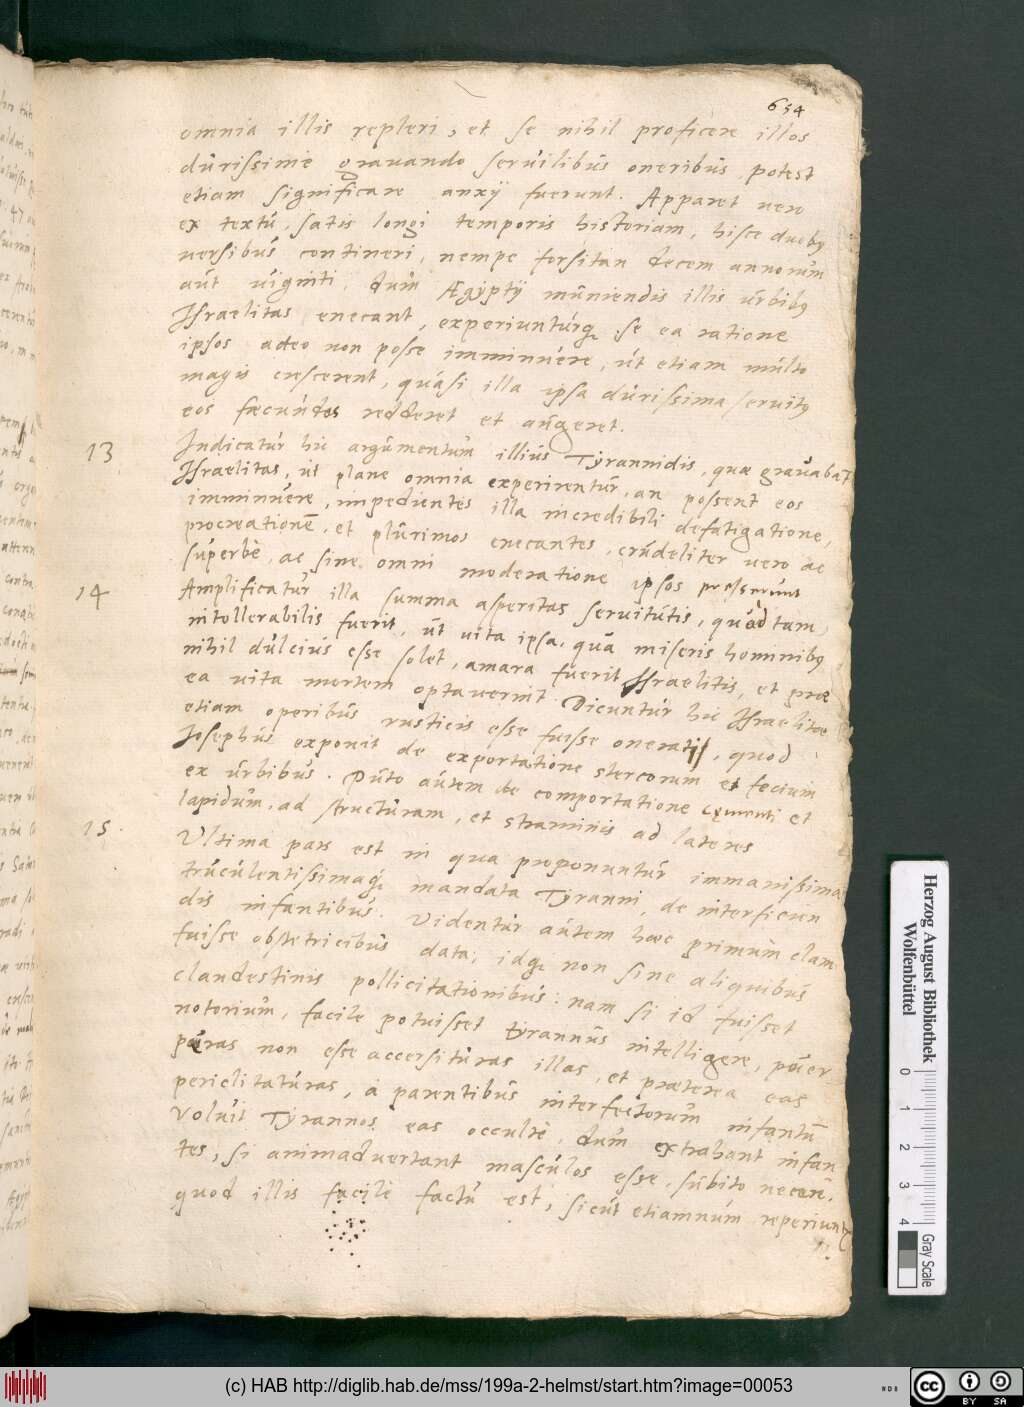 654
omnia illis repleri, et se nihil proficere illos
durissime gravando servilibus oneribus potest
etiam significare anxij fuerunt. Apparet vero
ex textu, satis longi temporis historiam, hisce duobꝫ
versibus contineri, nempe forsitan decem annorum
aut viginti, dum Ægyptij muniendis illis urbibꝫ
Israelitas enecant, experiunturqꝫ se ea ratione
ipsos adeo non posse imminuere, ut etiam multo
magis crescerent, quasi illa ipsa durissima servitꝫ
eos fæcundos redderet et augeret.
13 Indicatur hic argumentum illius Tyrannidis, quæ gravabat
Israelitas, ut plane omnia experirentur, an possent eos
imminuere, impedientes illa incredibili defatigatione,
procreationē, et plurimos enecantes, crudeliter vero ac
superbè, ac sine omni moderatione ipsos presserunt
14 Amplificatur illa summa asperitas servitutis, quod tam
intollerabilis fuerit, ut vita ipsa, qua miseris hominibꝫ
nihil dulcius esse solet, amara fuerit Israelitis, et præ
ea vita mortem optaverint. Dicuntur hic Israelitæ
etiam operibus rusticis esse fuisse onerati, quod
Josephus exponit de exportatione stercorum et fecium
ex urbibus. Puto autem de comportatione cęmenti et
lapidum, ad structuram, et straminis ad lateres
15. Ultima pars est in qua proponuntur immanissima
truculentissimaqꝫ mandata Tyranni, de interficien
dis infantibus. Videntur autem hæc primum clam
fuisse obstetricibus data, idqꝫ non sine aliquibus
clandestinis pollicitationibus: nam si id fuisset
notorium, facile potuisset tyrannus intelligere, puer
peras non esse accersituras illas, et præterea eas
periclitaturas, à parentibus interfectorum infantū
Voluit Tyrannos eas occultè, dum extrahant infan
tes, si animadvertant masculos esse, subito necare.
quod illis facile factu est, sicut etiamnum reperiunt
(c) HAB http://diglib.hab.de/mss/199a-2-helmst/start.htm?image=00053
Herzog August Bibliothek
Wolfenbüttel
0 1 2 3 4
Gray Scale
cc
BY SA